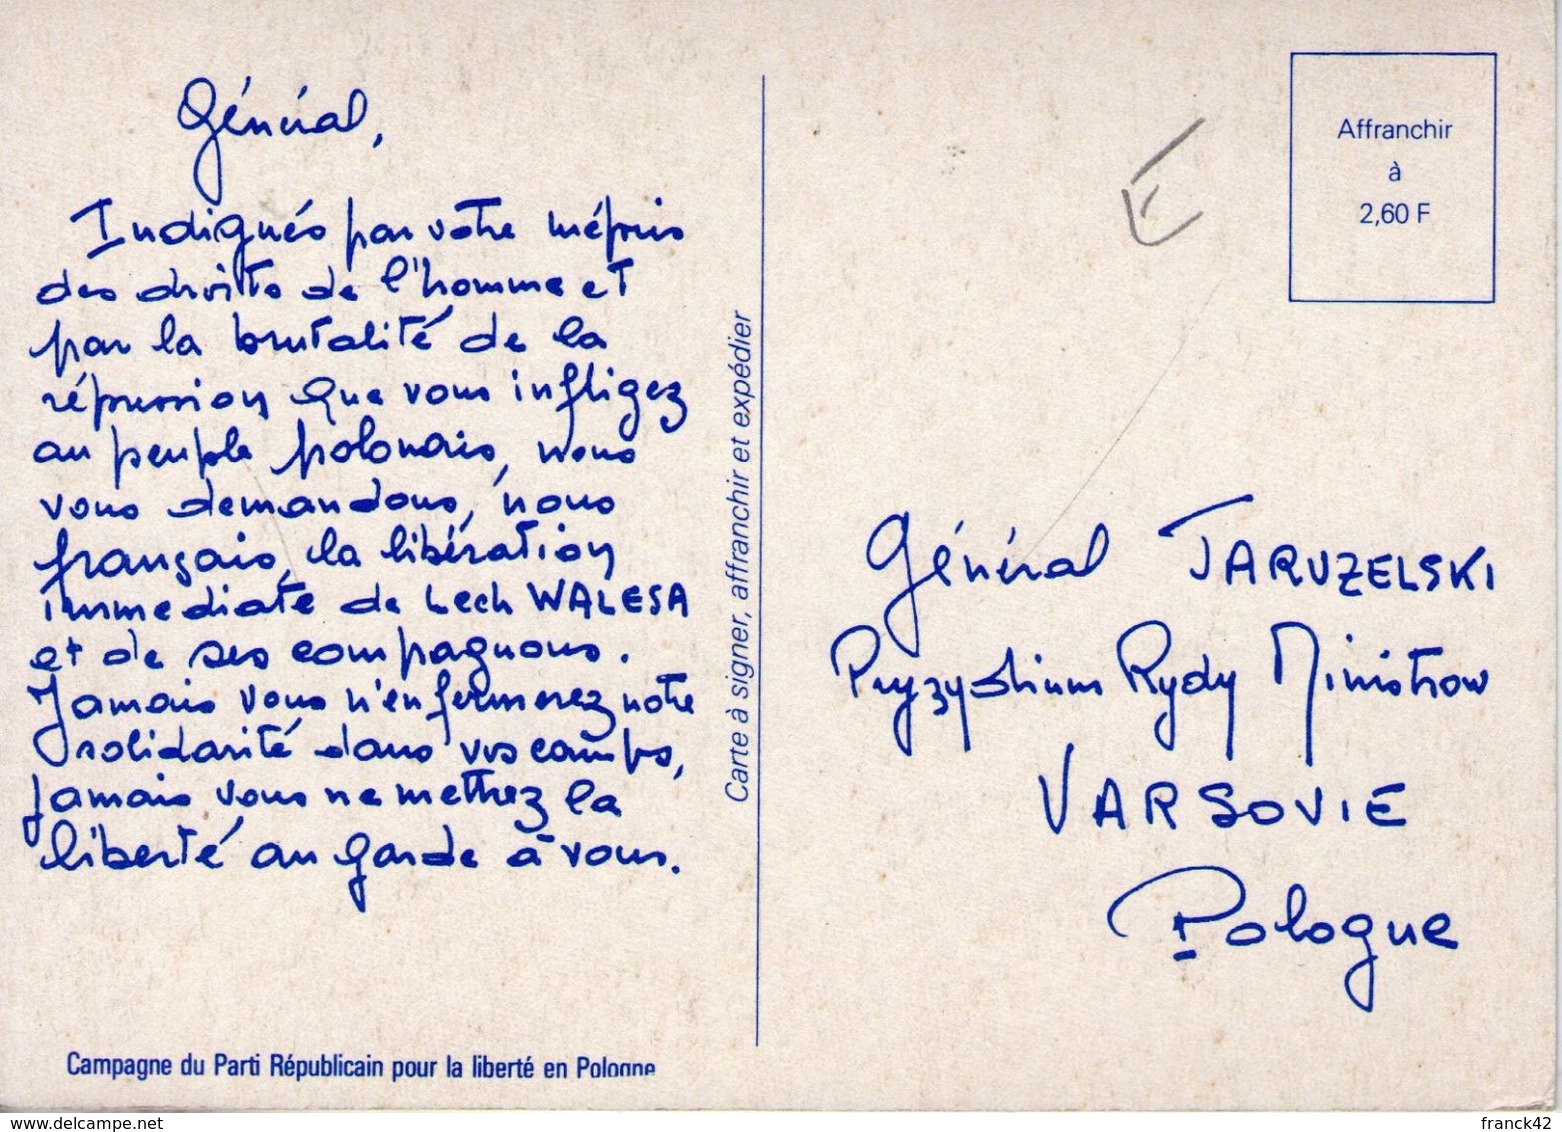 Général,
Indignés par votre mépris
des droits de l'homme et
par la brutalité de la
répression que vous infligez
au peuple polonais, nous
vous demandons, nous
français, la libération
immediate de Lech WALESA
et de ses compagnons.
Jamais vous n'enfermerez notre
solidarité dans vos camps,
jamais vous ne mettrez la
liberté au garde à vous.
Campagne du Parti Républicain pour la liberté en Pologne
Carte à signer, affranchir et expédier
Affranchir
à
2,60 F
E
Général JARUZELSKI
Pryzydium Rydy Ministrow
VARSOVIE
Pologne
www.delcampe.net
franck42